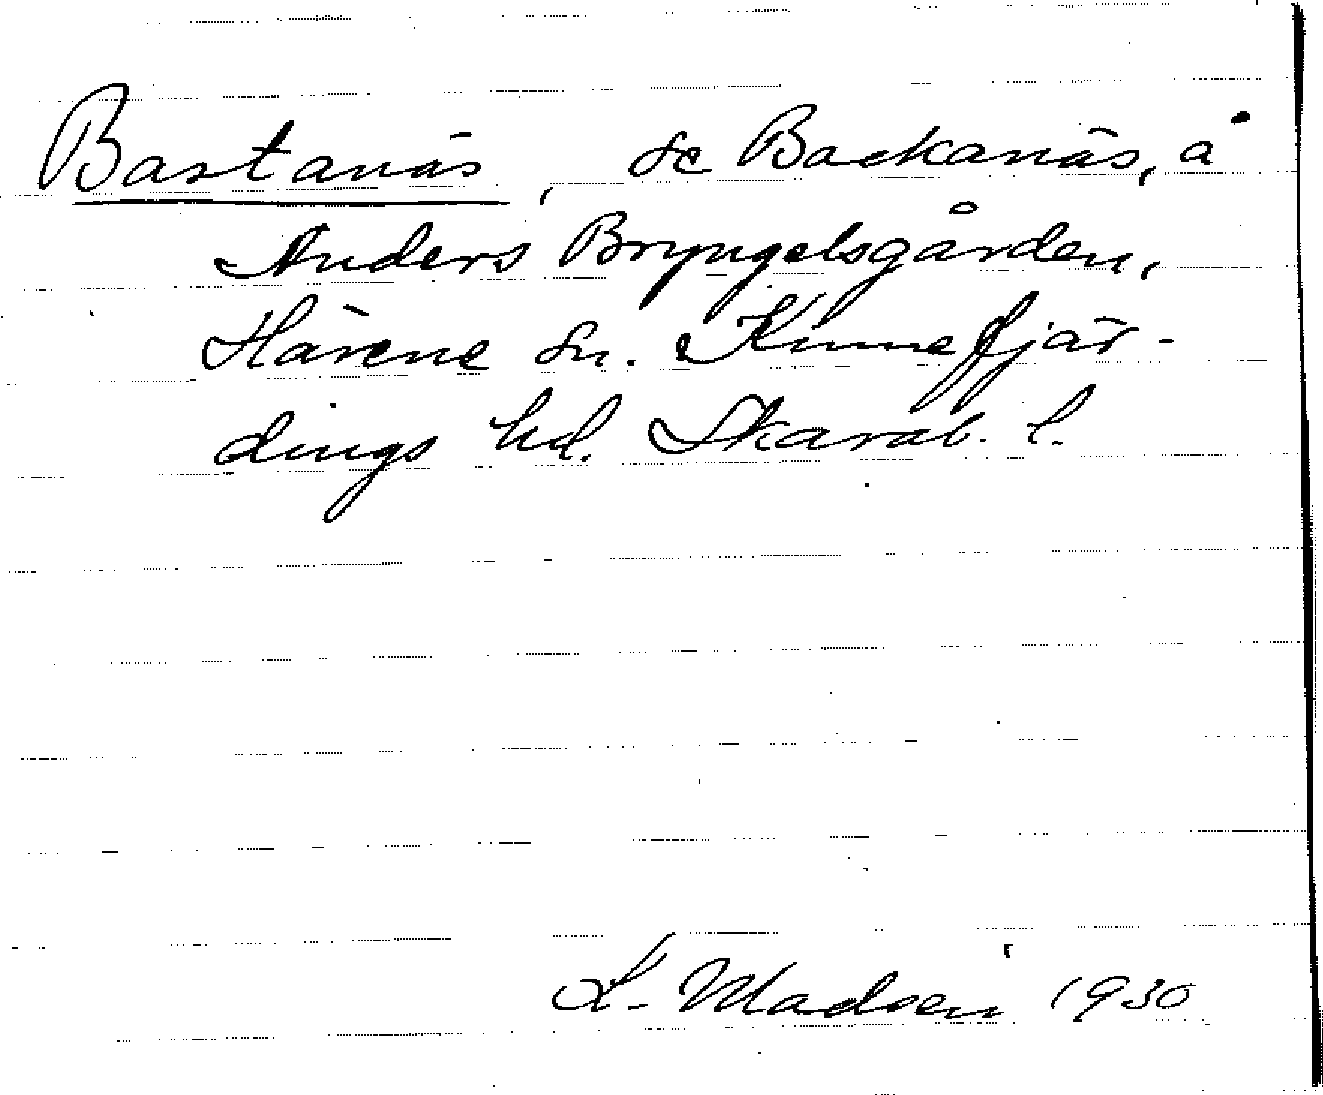 Bastanäs, se Backanäs, å
Anders Bryngelsgården,
Härene sn. Kinnefjär-
dings hd. Skarab. l.
L. Madsen 1930